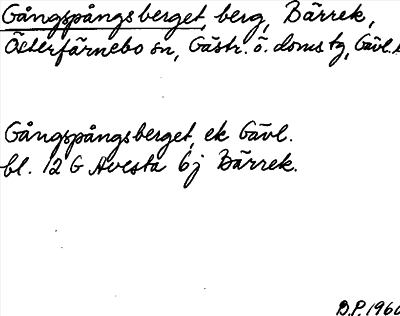 Gångspångsberget, berg, Bärrek,
Österfärnebo sn, Gästr. ö. doms tg, Gävl.
Gångspångsberget, ek Gävl.
bl. 12 G Avesta 6j Bärrek.
D.P. 1960